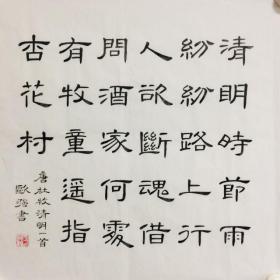 清明時節雨
紛紛路上行
人欲斷魂借
問酒家何處
有牧童遥指
杏花村
唐杜牧清明一首
歐强書